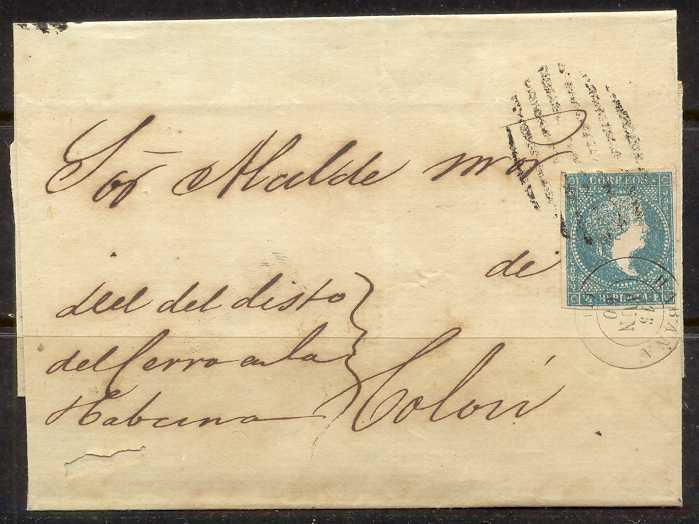 Sor Alcalde mor
de
del disto
del Cerro en la
Habana
Colón
CORREOS
HABANA
15
JUN
60